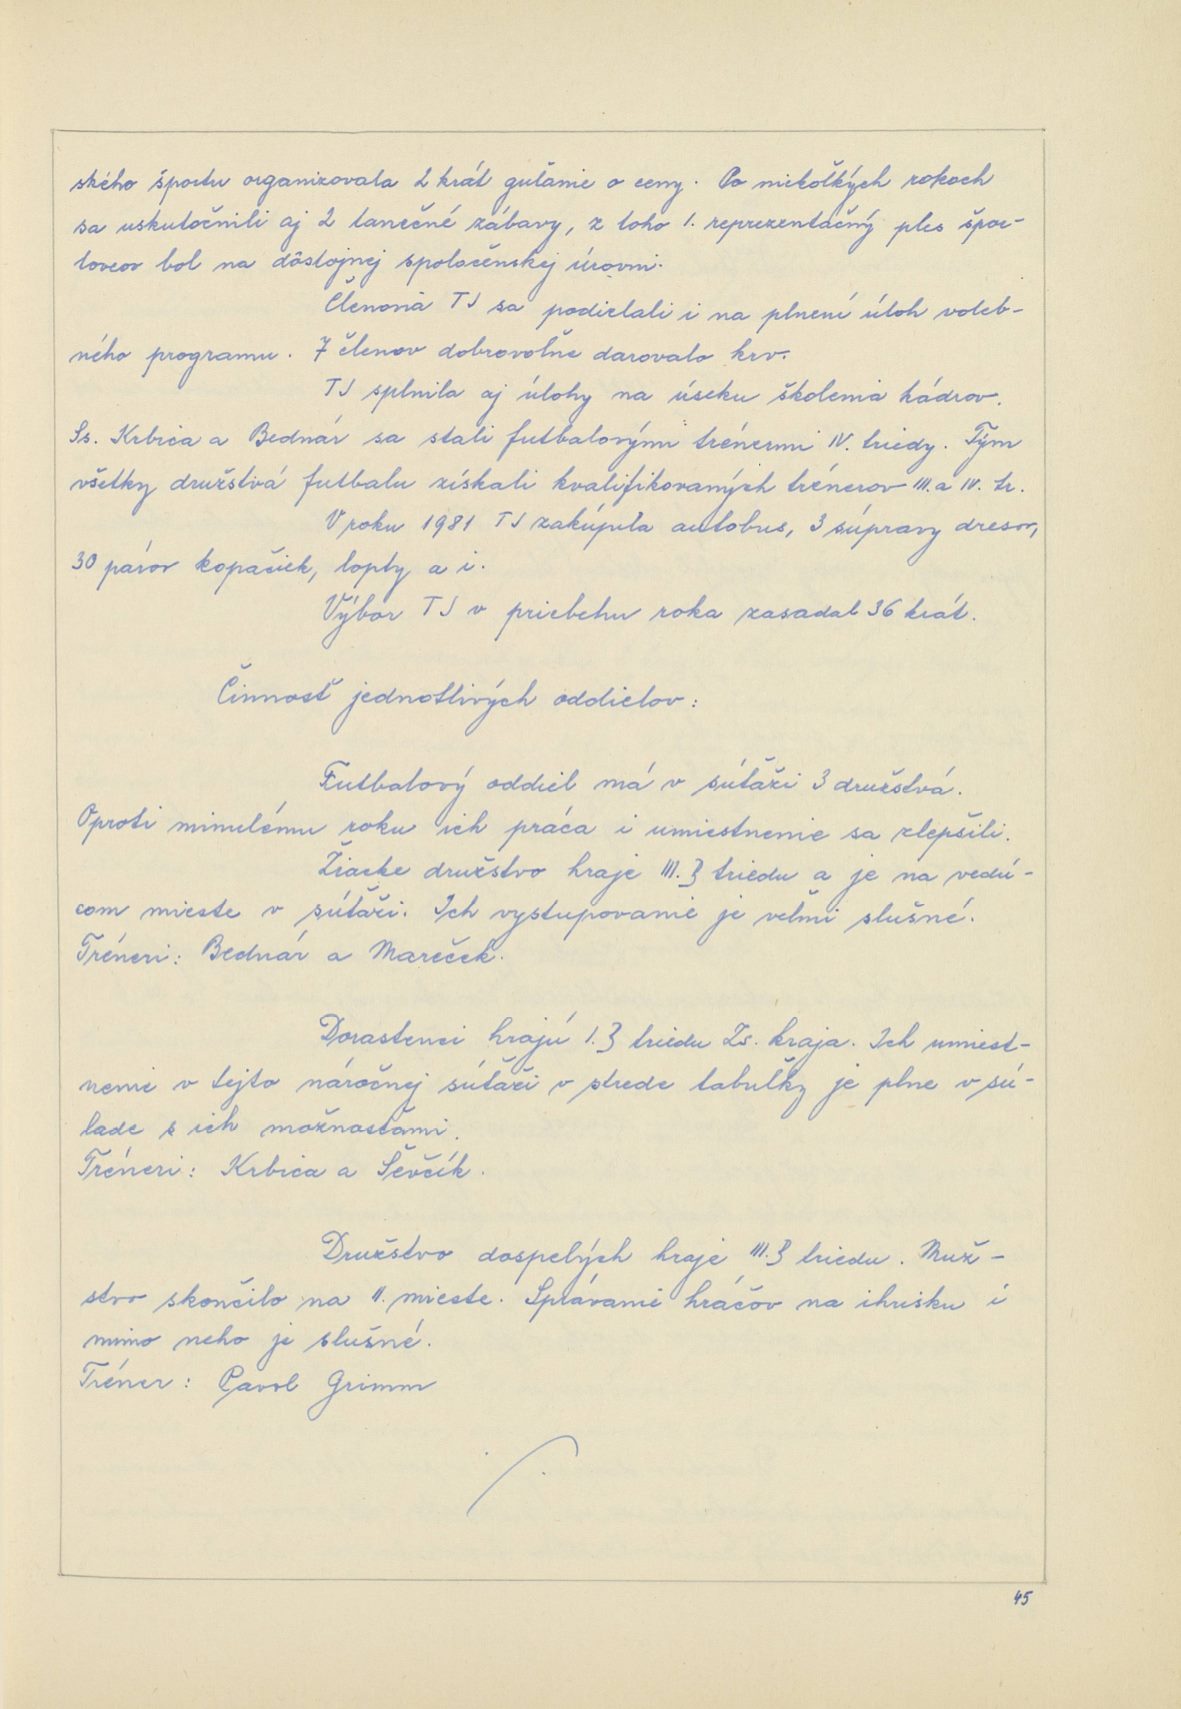 ského športu organizovala 2 krát guľanie o ceny. Po niekoľkých rokoch
sa uskutočnili aj 2 tanečné zábavy, z toho 1. reprezentačný ples špor-
tovcov bol na dôstojnej spoločenskej úrovni.
Členovia TJ sa podielali i na plnení úloh voleb-
ného programu. 7 členov dobrovoľne darovalo krv.
TJ splnila aj úlohy na úseku školenia kádrov.
Ss. Krbica a Bednár sa stali futbalovými trénermi IV. triedy. Tým
všetky družstvá futbalu získali kvalifikovaných trénerov III. a IV. tr.
V roku 1981 TJ zakúpila autobus, 3 súpravy dresov,
30 párov kopačiek, lopty a i.
Výbor TJ v priebehu roka zasadal 36 krát.
Činnosť jednotlivých oddielov:
Futbalový oddiel má v súťaži 3 družstvá.
Oproti minulému roku ich práca i umiestnenie sa zlepšili.
Žiacke družstvo hraje III. B triedu a je na vedú-
com mieste v súťaži. Ich vystupovanie je veľmi slušné.
Tréneri: Bednár a Mareček.
Dorastenci hrajú I. B triedu Zs. kraja. Ich umiest-
nenie v tejto náročnej súťaži v strede tabuľky je plne v sú-
lade s ich možnosťami.
Tréneri: Krbica a Ševčík.
Družstvo dospelých hraje III. B triedu. Muž-
stvo skončilo na II. mieste. Správanie hráčov na ihrisku i
mimo neho je slušné.
Tréner: Pavol Grimm
45